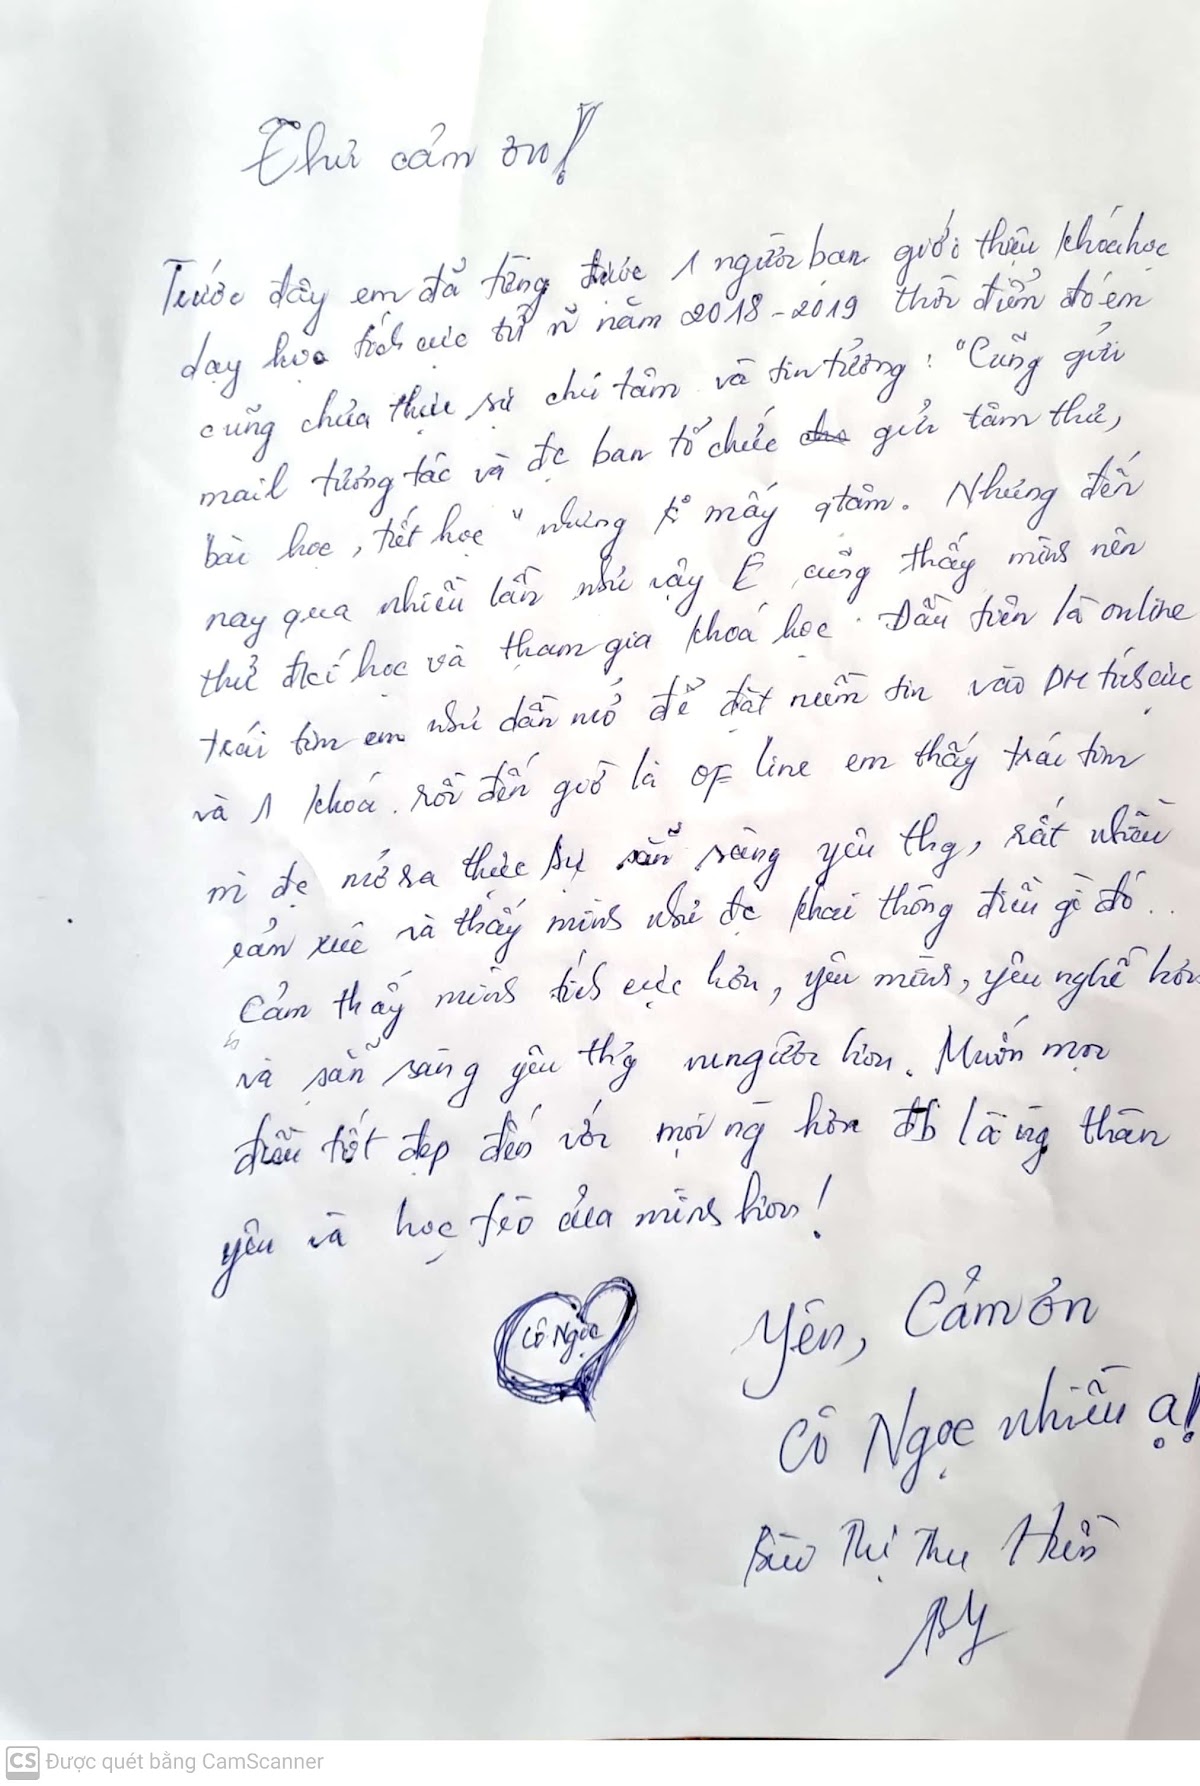 Thư cảm ơn!
Trước đây em đã từng được 1 người bạn giới thiệu khóa học
dạy học tích cực từ n~ năm 2018-2019 thời điểm đó em
cũng chưa thực sự chú tâm và tin tưởng: "Cũng gửi
mail tương tác và đc ban tổ chức gửi tâm thư,
bài học, tiết học" nhưng k° mấy qtâm. Nhưng đến
nay qua nhiều lần như vậy E cũng thấy mình nên
thử đkí học và tham gia khoá học. Đầu tiên là online
trái tim em như dần mở để đặt niềm tin vào DH tích cực
và 1 khoá. rồi đến giờ là of line em thấy trái tim
mì đc mở ra thực sự sẵn sàng yêu thg, rất nhiều
cảm xúc và thấy mình như đc khai thông điều gì đó..
Cảm thấy mình tích cực hơn, yêu mình, yêu nghề hơn
và sẵn sàng yêu thg mngười hơn. Muốn mọi
điều tốt đẹp đến với mọi ng hơn đb là ng thân
yêu và học trò của mình hơn!
Cô Ngọc
Yên, Cảm ơn
Cô Ngọc nhiều ạ!
Thị Thu Hiền
CS Được quét bằng CamScanner